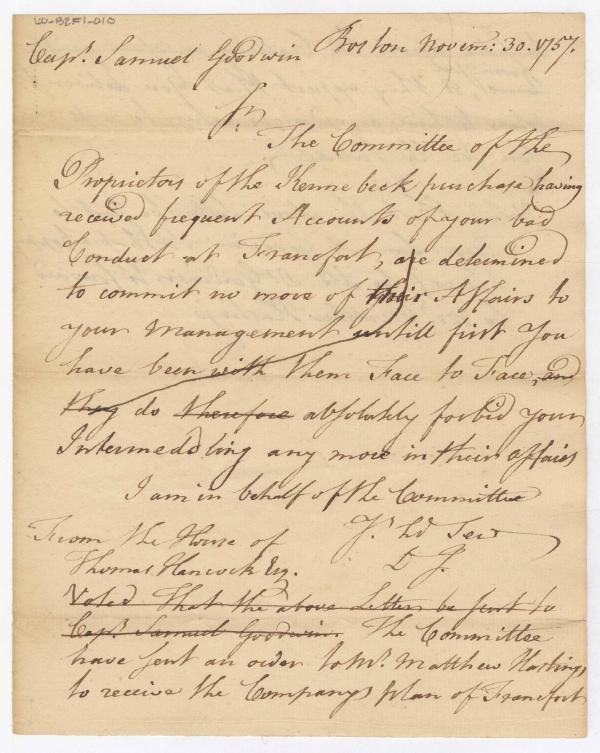 LO-B2F1-010
Capt. Samuel Goodwin Boston Novem: 30. 1757.
Sr.
The Committee of the
Proprietors of the Kennebeck purchase having
received frequent Accounts of your bad
Conduct at Francfort, are determined
to commit no more of their Affairs to
your Management untill first You
have been with them Face to Face, and
they do therefore absolutely forbid your
Intermeddling any more in their affairs
I am in behalf of the Committee
From the House of Yr. hl Serv
Thomas Hancock Esq. D J.
Voted That the above Letter be sent to
Capt. Samuel Goodwin. The Committee
have sent an order to Mr. Matthew Hastings
to receive the Companys plan of Francfort